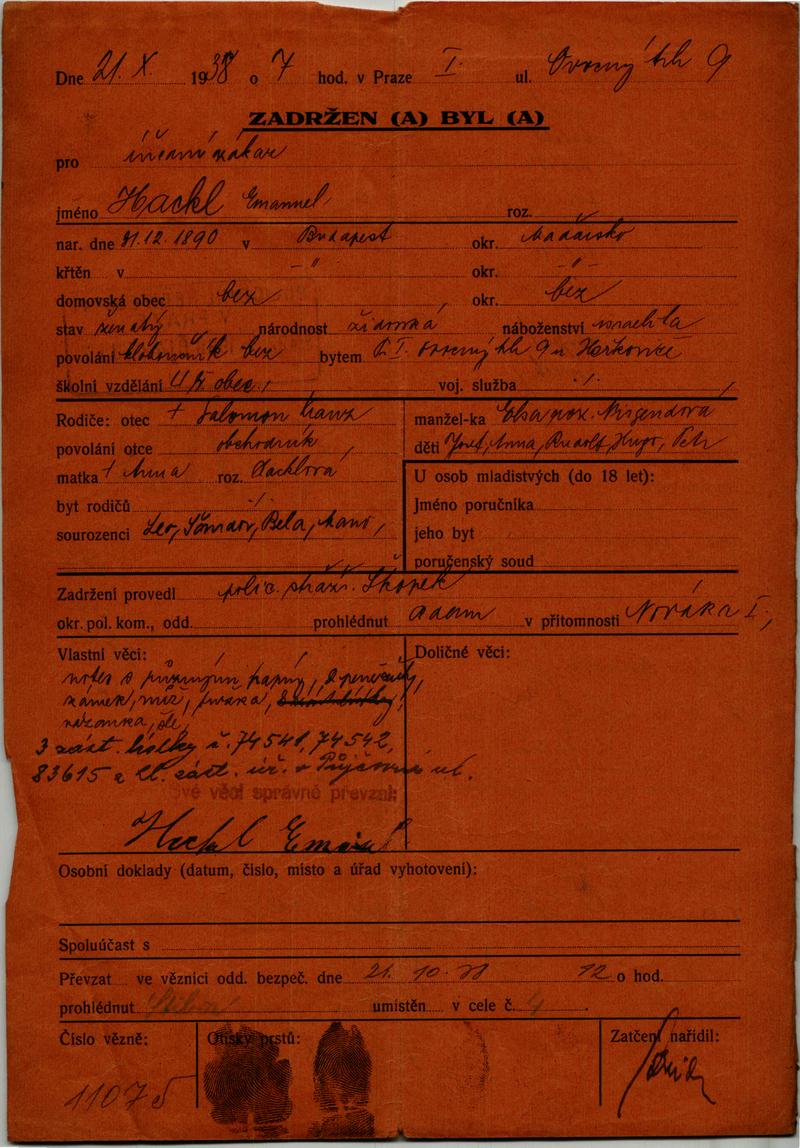 Dne 21. X. 1938 o 7 hod. v Praze I. ul. Ovocný trh 9
ZADRŽEN (A) BYL (A)
pro
jméno Hackl Emanuel roz.
nar. dne 21.12.1890 v Budapest okr. Maďarsko
křtěn v -"- okr. -"-
domovská obec bez, okr. bez
stav ženatý národnost židovská náboženství israelita
povolání kloboučník bez bytem P. I. Ovocný trh 9 u Herkoviče
školní vzdělání obec., voj. služba ./.
Rodiče: otec + Salomon
povolání otce obchodník,
matka + Anna roz. Hacklová
byt rodičů ./.
sourozenci Leo, Bela,
manžel-ka Elsa roz.
děti Josef, Anna, Rudolf, Hugo, Petr
U osob mladistvých (do 18 let):
Jméno poručníka
jeho byt
poručenský soud
Zadržení provedl polic. stráž. Škopek
okr. pol. kom., odd. prohlédnut Adam v přítomnosti Nováka I.,
Vlastní věci:
notes s různými papíry, 2 peněženky,
zámek, nůž,
vázanka, šle,
3 zást. lístky č. 74541, 74542,
83615 a zl. zást. úř. v Půjčovní ul.
Své věci správně převzal:
Hackl Emanuel
Doličné věci:
Osobní doklady (datum, číslo, místo a úřad vyhotovení):
Spoluúčast s
Převzat ve věznici odd. bezpeč. dne 21. 10. 38 12 o hod.
prohlédnut umístěn v cele č. 4.
Číslo vězně:
11075
Otisky prstů:
Zatčení nařídil: